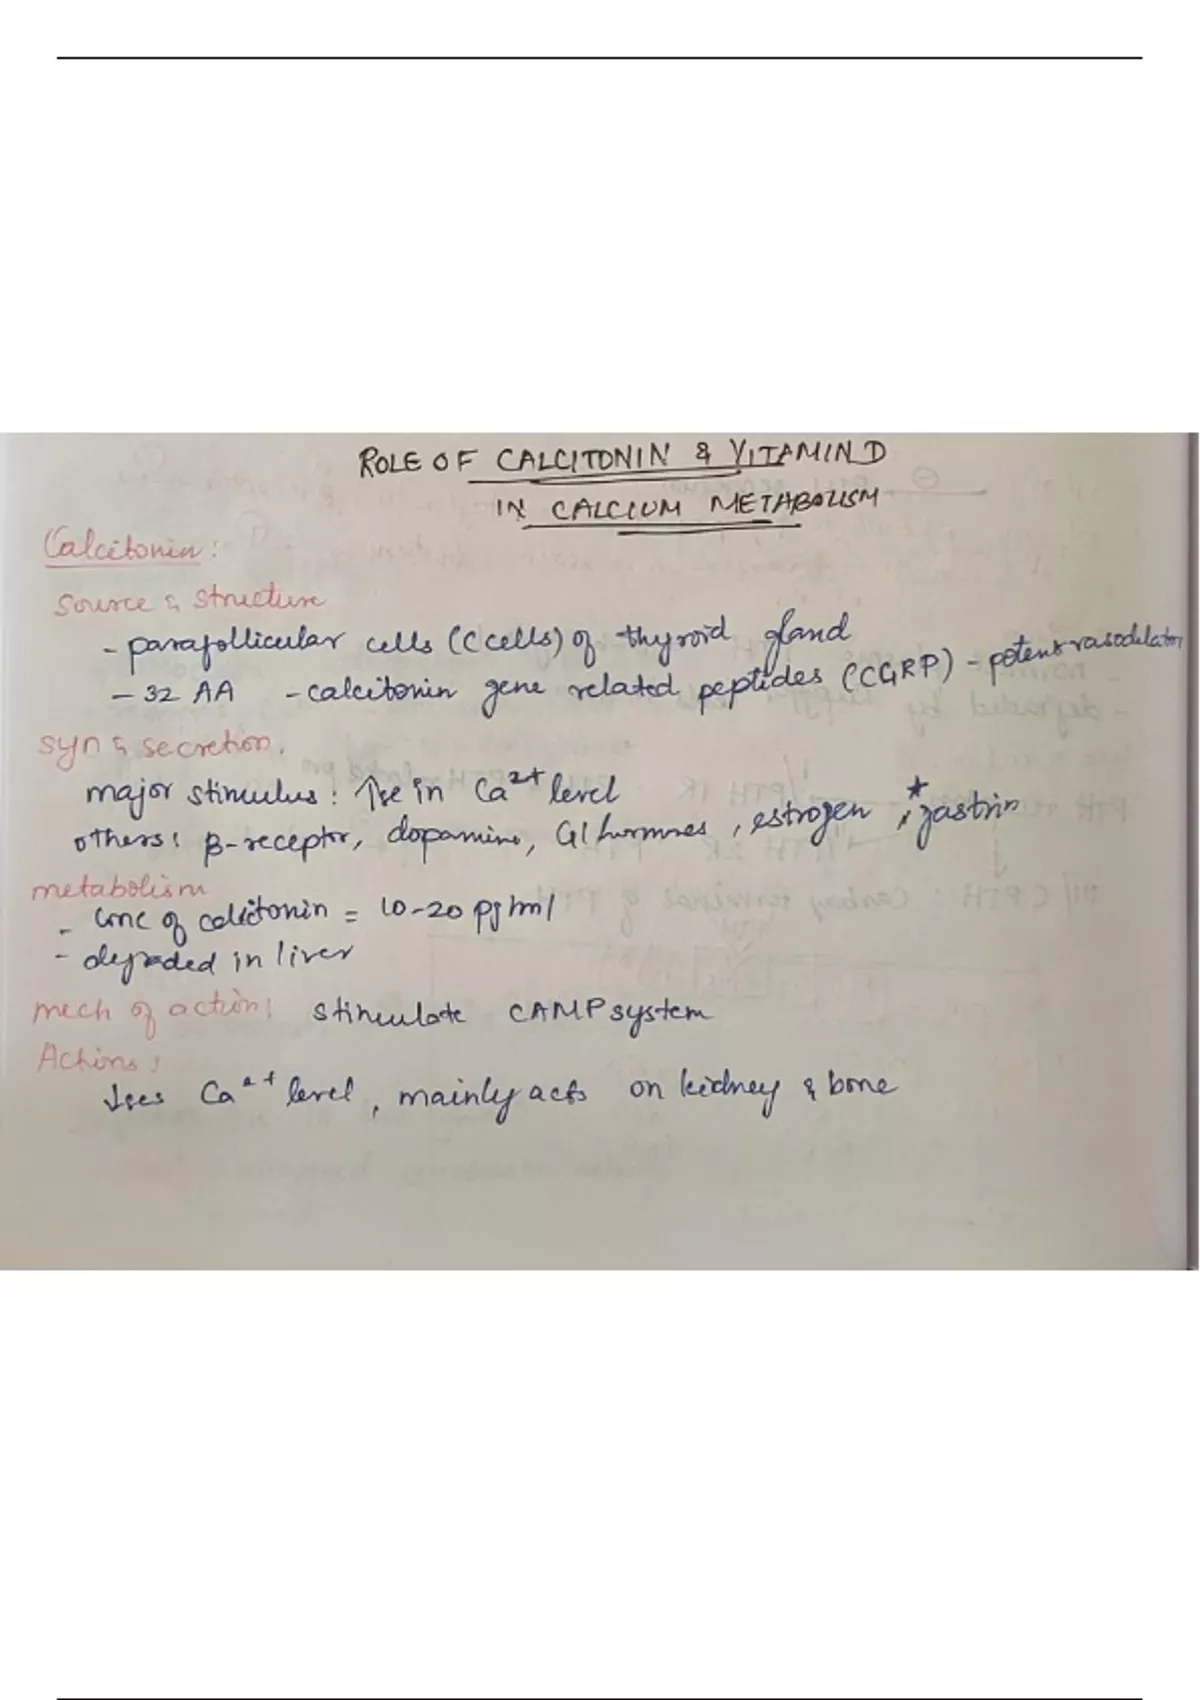 ROLE OF CALCITONIN & VITAMIN D
IN CALCIUM METABOLISM
Calcitonin:
Source & structure
- parafollicular cells (C cells) of thyroid gland
- 32 AA - calcitonin gene related peptides (CGRP) - potent vasodilator
syn & secretion.
major stimulus: ↑se in Ca²⁺ level
others: β-receptor, dopamine, GI hormones, estrogen, *gastrin
metabolism
- conc of calcitonin = 10-20 pg/ml
- degraded in liver
mech of action: stimulate cAMP system
Actions:
↓ses Ca²⁺ level, mainly acts on kidney & bone